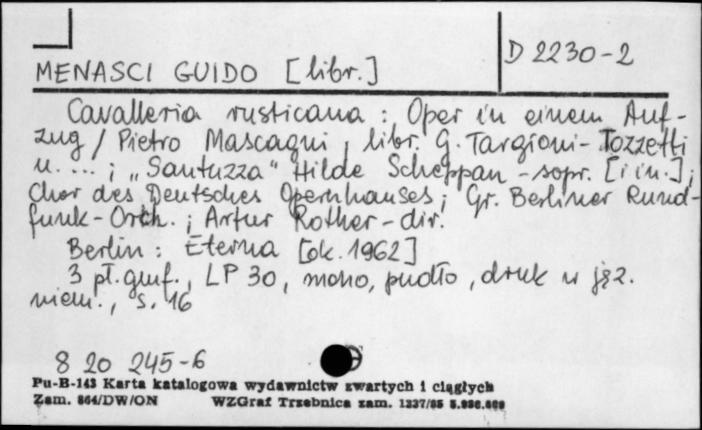 D 2230-2
MENASCI GUIDO [libr.]
Cavalleria rusticana : Oper in einem Auf-
zug / Pietro Mascagni, libr. G. Targioni-Tozzetti
u. ... ; „Santuzza" Hilde Scheppan - sopr. [i in.];
Chor des Deutsches Opernhauses; Gr. Berliner Rund-
funk-Orch. ; Artur Rother - dir.
Berlin : Eterna [ok. 1962]
3 pł. gmf., LP 30, mono, pudło, druk w jęz.
niem., s. 16
8 20 245-6
Pu-B-143 Karta katalogowa wydawnictw zwartych i ciągłych
Zam. 864/DW/ON WZGraf Trzebnica zam. 1237/85